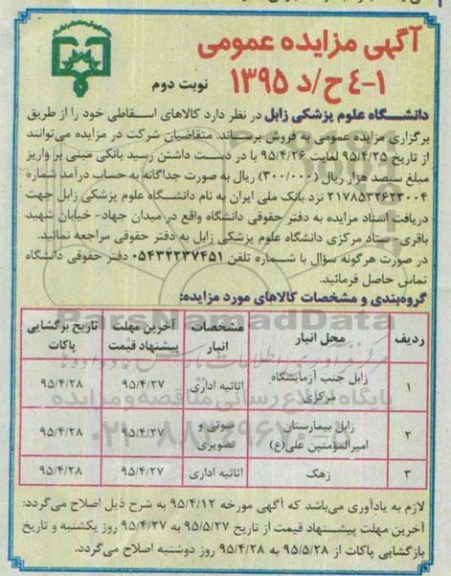 آگهی مزایده عمومی
۴-۱ح/د ۱۳۹۵ نوبت دوم
دانشگاه علوم پزشکی زابل در نظر دارد کالاهای اسقاطی خود را از طریق
برگزاری مزایده عمومی به فروش برساند. متقاضیان شرکت در مزایده می‌توانند
از تاریخ ۹۵/۴/۲۵ لغایت ۹۵/۴/۲۶ با در دست داشتن رسید بانکی مبنی بر واریز
مبلغ سیصد هزار ریال (۳۰۰/۰۰۰) ریال به صورت جداگانه به حساب درآمد شماره
۲۱۷۸۵۳۳۶۲۳۰۰۴ نزد بانک ملی ایران به نام دانشگاه علوم پزشکی زابل جهت
دریافت اسناد مزایده به دفتر حقوقی دانشگاه واقع در میدان جهاد- خیابان شهید
باقری- ستاد مرکزی دانشگاه علوم پزشکی زابل به دفتر حقوقی مراجعه نمائید.
در صورت هرگونه سؤال با شماره تلفن ۰۵۴۳۲۲۳۷۴۵۱ دفتر حقوقی دانشگاه
تماس حاصل فرمائید.
گروه‌بندی و مشخصات کالاهای مورد مزایده:
ردیف محل انبار مشخصات انبار آخرین مهلت پیشنهاد قیمت تاریخ برگشایی پاکات
۱ زابل جنب آزمایشگاه مرکزی اثاثیه اداری ۹۵/۴/۲۷ ۹۵/۴/۲۸
۲ زابل بیمارستان امیرالمؤمنین علی(ع) صوتی و تصویری ۹۵/۴/۲۷ ۹۵/۴/۲۸
۳ زهک اثاثیه اداری ۹۵/۴/۲۷ ۹۵/۴/۲۸
لازم به یادآوری می‌باشد که آگهی مورخه ۹۵/۴/۱۲ به شرح ذیل اصلاح می‌گردد:
آخرین مهلت پیشنهاد قیمت از تاریخ ۹۵/۵/۲۷ به ۹۵/۴/۲۷ روز یکشنبه و تاریخ
بازگشایی پاکات از ۹۵/۵/۲۸ به ۹۵/۴/۲۸ روز دوشنبه اصلاح می‌گردد.
ParsNamadData
پایگاه اطلاع رسانی مناقصه و مزایده
۰۲۱-۸۸۳۴۹۶۷۰